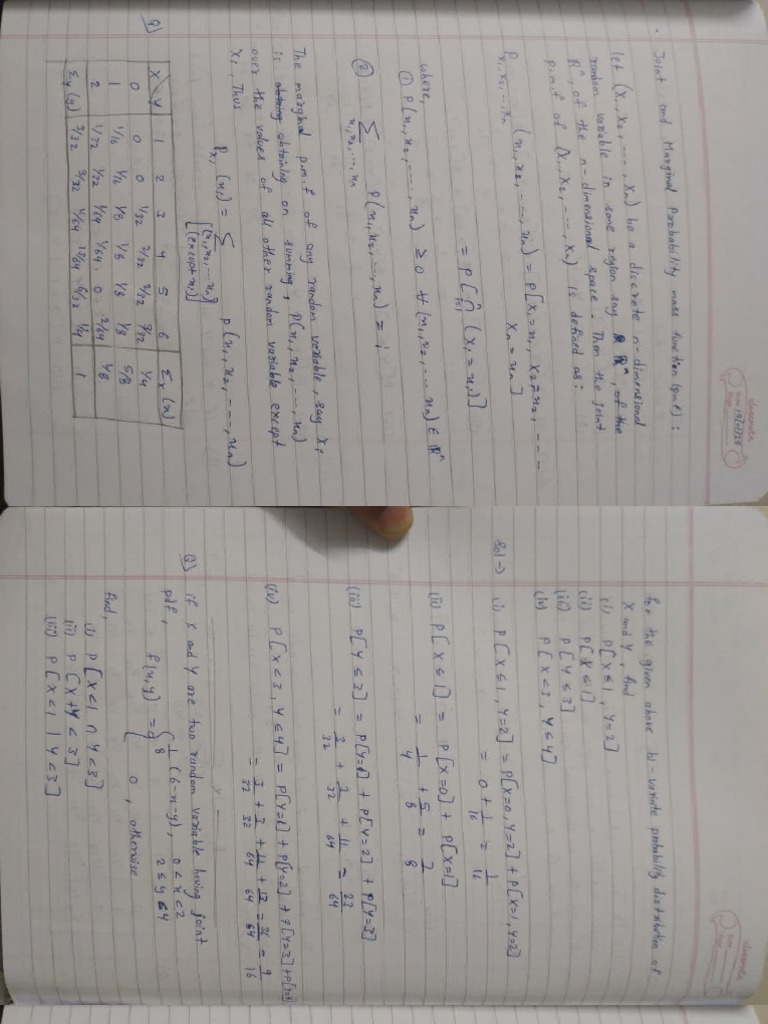 classmate
Date 19/07/23
Page
• Joint and Marginal Probability mass function (pmf) :
let (X₁, X₂, ---, Xn) be a discrete n-dimensional
random variable in some region say Rⁿ, of the
Rⁿ, of the n-dimensional space. Then the joint
p.m.f of (X₁, X₂, ---, Xn) is defined as:
P x₁, x₂, ---, xn (x₁, x₂, ---, xn) = P[X₁ = x₁, X₂ = x₂, ---
Xn = xn]
= P[ ⁿ∩ᵢ₌₁ (Xᵢ = xᵢ)]
where,
① P(x₁, x₂, ----, xn) ≥ 0 ∀ (x₁, x₂, --- xn) ∈ Rⁿ
② Σ x₁, x₂, ---, xn P(x₁, x₂, ---, xn) = 1
The marginal p.m.f of any random variable, say X₁
is obtaining on summing, P(x₁, x₂, ---, xn)
over the values of all other random variable except
X₁, Thus
Px₁ (x₁) = Σ p(x₁, x₂, ---, xn)
[(x₁, x₂, --- xn)
(except x₁)]
Q)
X \ Y 1 2 3 4 5 6 Σx(x)
0 0 0 1/32 2/32 2/32 3/32 1/4
1 1/16 1/16 1/8 1/8 1/8 1/8 5/8
2 1/32 1/32 1/64 1/64 0 2/64 1/8
Σy(y) 3/32 3/32 11/64 13/64 6/32 1/4 1
classmate
Date
Page
for the given above bi-variate probability distribution of
X and Y, find
(i) P[X ≤ 1, Y = 2]
(ii) P[X ≤ 1]
(iii) P[Y ≤ 3]
(iv) P[X < 3, Y ≤ 4]
Sol → (i) P[X ≤ 1, Y = 2] = P[X = 0, Y = 2] + P[X = 1, Y = 2]
= 0 + 1/16 = 1/16
(ii) P[X ≤ 1] = P[X = 0] + P[X = 1]
= 1/4 + 5/8 = 7/8
(iii) P[Y ≤ 3] = P[Y = 1] + P[Y = 2] + P[Y = 3]
= 3/32 + 3/32 + 11/64 = 23/64
(iv) P[X < 3, Y ≤ 4] = P[Y = 1] + P[Y = 2] + P[Y = 3] + P[Y = 4]
= 3/32 + 3/32 + 11/64 + 13/64 = 36/64 = 9/16
Q) if X and Y are two random variable having joint
pdf,
f(x, y) = { 1/8 (6 - x - y), 0 < x < 2
2 ≤ y ≤ 4
0, otherwise
find,
(i) P[X < 1 ∩ Y < 3]
(ii) P[X + Y < 3]
(iii) P[X < 1 | Y < 3]